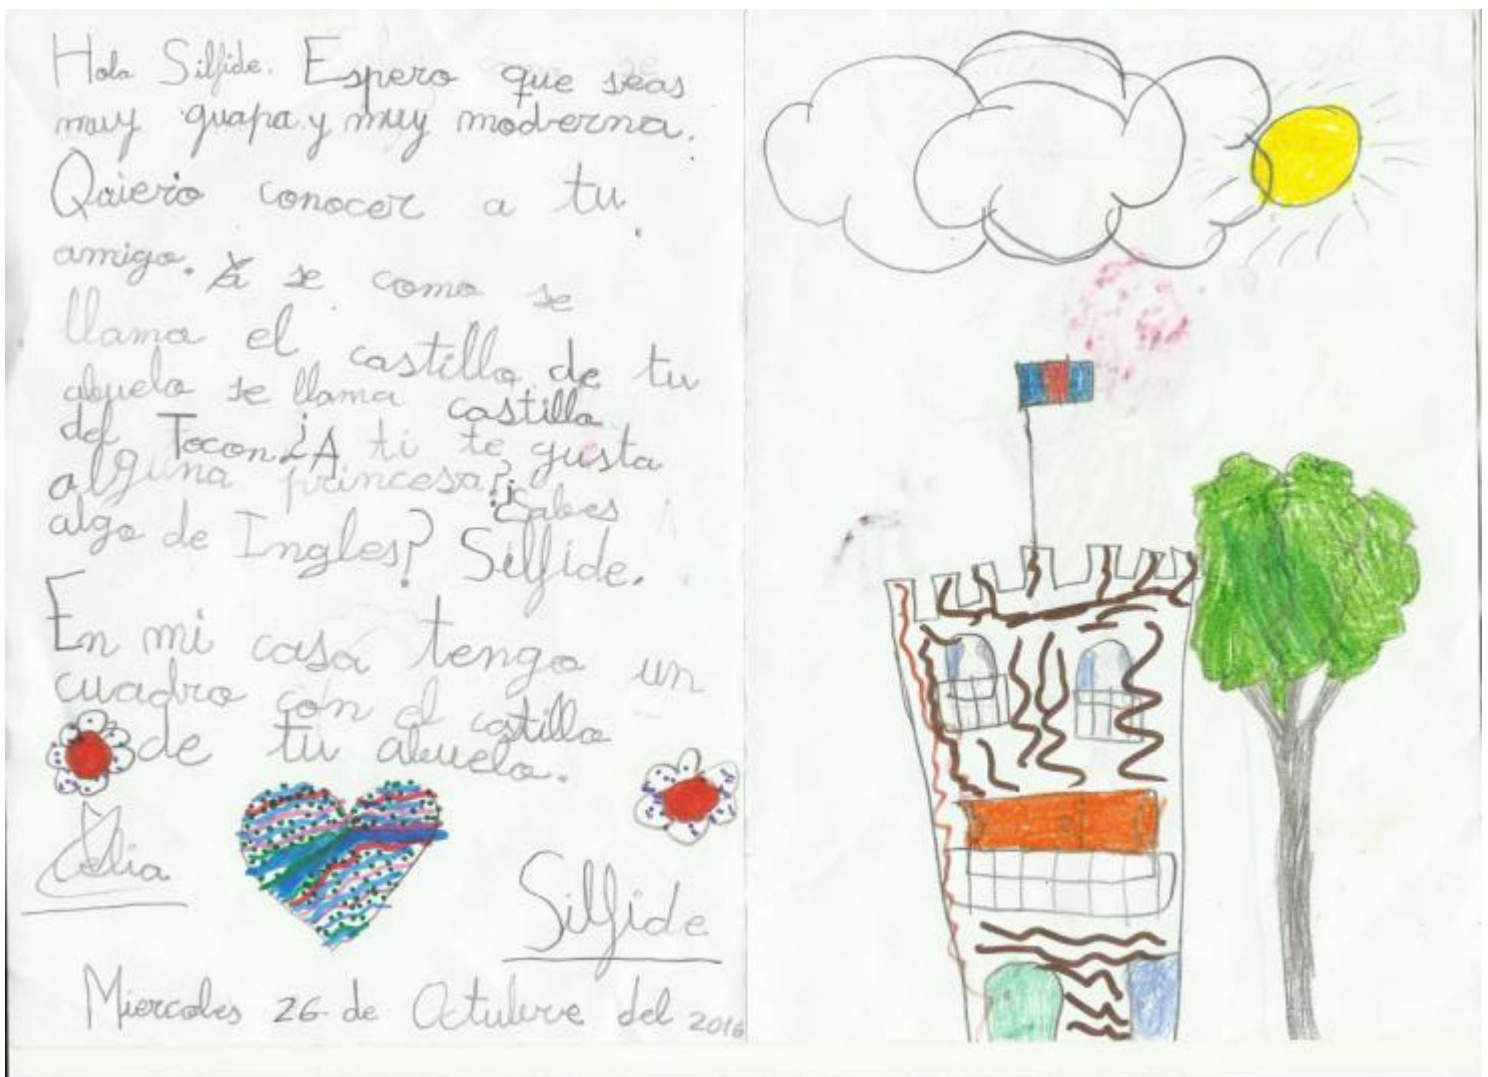 Hola Silfide. Espero que seas
muy guapa y muy moderna.
Quiero conocer a tu
amigo. Ya se como se
llama el castillo de tu
abuelo se llama castillo
del Tocon ¿A ti te gusta
alguna princesa? ¿Sabes
algo de Ingles? Silfide.
En mi casa tengo un
cuadro con el castillo
de tu abuelo.
Celia
Silfide
Miercoles 26 de Octubre del 2016